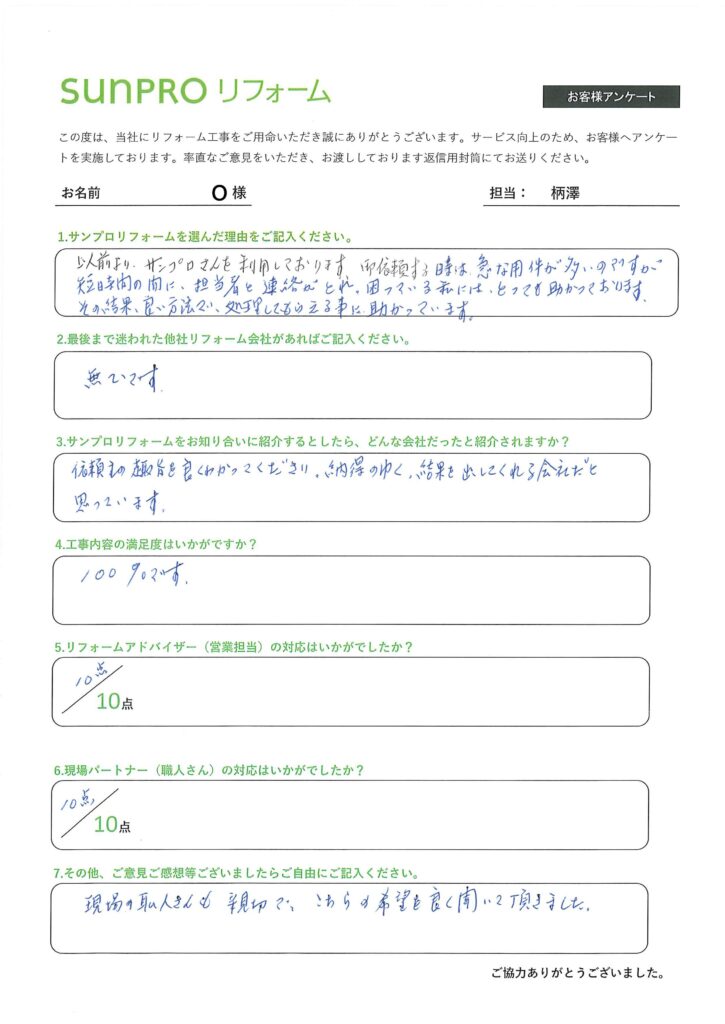 sunpro リフォーム
お客様アンケート
この度は、当社にリフォーム工事をご用命いただき誠にありがとうございます。サービス向上のため、お客様へアンケー
トを実施しております。率直なご意見をいただき、お渡ししております返信用封筒にてお送りください。
お名前 O 様 担当： 柄澤
1.サンプロリフォームを選んだ理由をご記入ください。
以前より、サンプロさんを利用しております。御依頼する時は、急な用件が多いのですが
短時間の間に、担当者と連絡がとれ、困っている私には、とっても助かっております。
その結果、良い方法で、処理してもらえる事に助かっています。
2.最後まで迷われた他社リフォーム会社があればご記入ください。
無いです。
3.サンプロリフォームをお知り合いに紹介するとしたら、どんな会社だったと紹介されますか？
依頼主の趣旨を良くわかってくださり、納得のゆく、結果を出してくれる会社だと
思っています。
4.工事内容の満足度はいかがですか？
100％です。
5.リフォームアドバイザー（営業担当）の対応はいかがでしたか？
10点
10点
6.現場パートナー（職人さん）の対応はいかがでしたか？
10点
10点
7.その他、ご意見ご感想等ございましたらご自由にご記入ください。
現場の職人さんも親切で、こちらの希望を良く聞いて頂きました。
ご協力ありがとうございました。